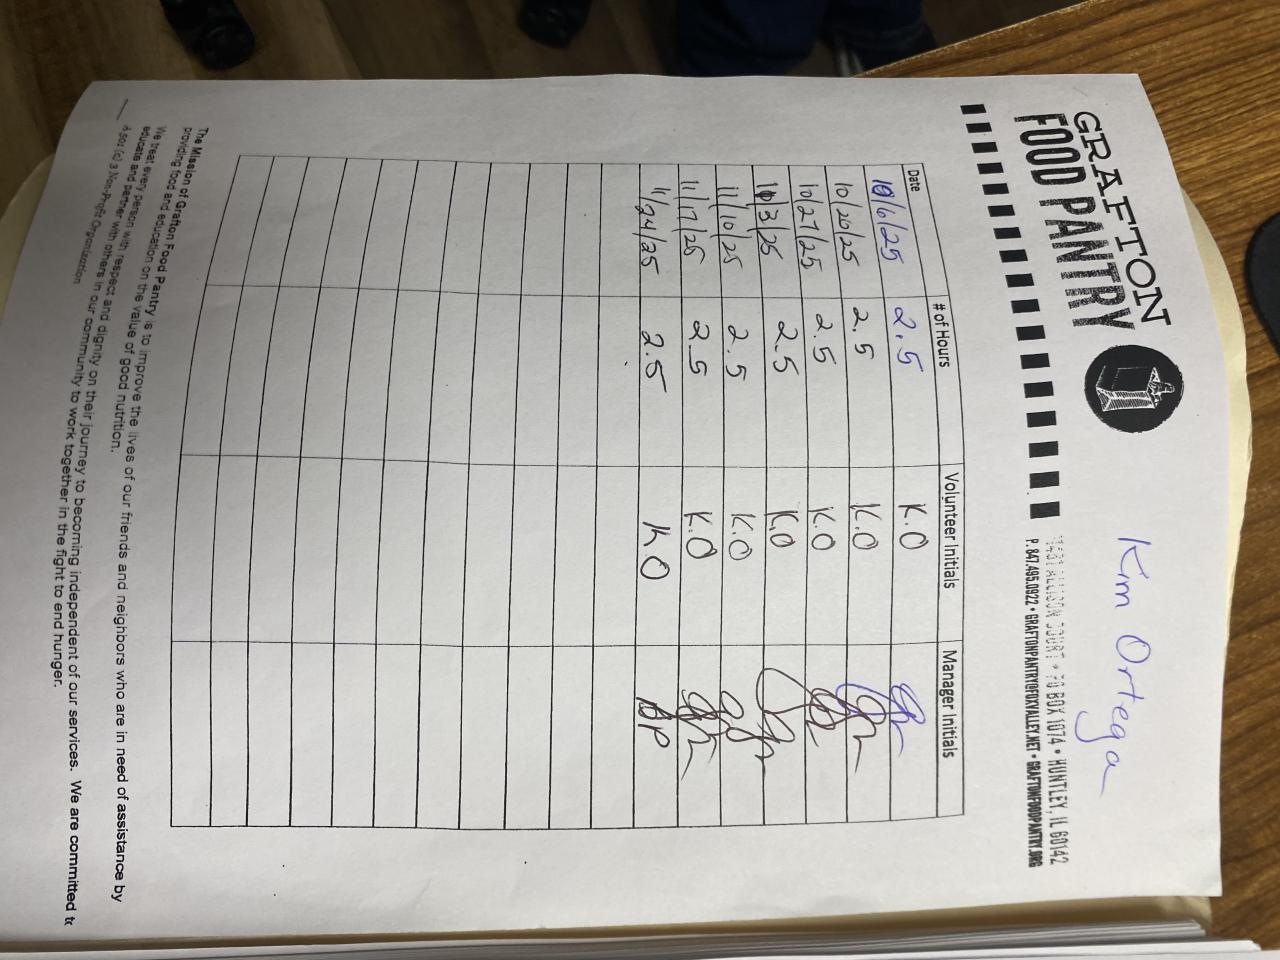 Kim Ortega
GRAFTON
FOOD PANTRY
11481 ALLISON COURT • PO BOX 1074 • HUNTLEY, IL 60142
P. 847.495.0922 • GRAFTONPANTRY@FOXVALLEY.NET • GRAFTONFOODPANTRY.ORG
Date # of Hours Volunteer Initials Manager Initials
10/6/25 2.5 K.O
10/20/25 2.5 K.O
10/27/25 2.5 K.O
11/3/25 2.5 K.O
11/10/25 2.5 K.O
11/17/25 2.5 K.O
11/24/25 2.5 K.O
The Mission of Grafton Food Pantry is to improve the lives of our friends and neighbors who are in need of assistance by
providing food and education on the value of good nutrition.
We treat every person with respect and dignity on their journey to becoming independent of our services. We are committed
educate and partner with others in our community to work together in the fight to end hunger.
A 501 (c) 3 Non-Profit Organization